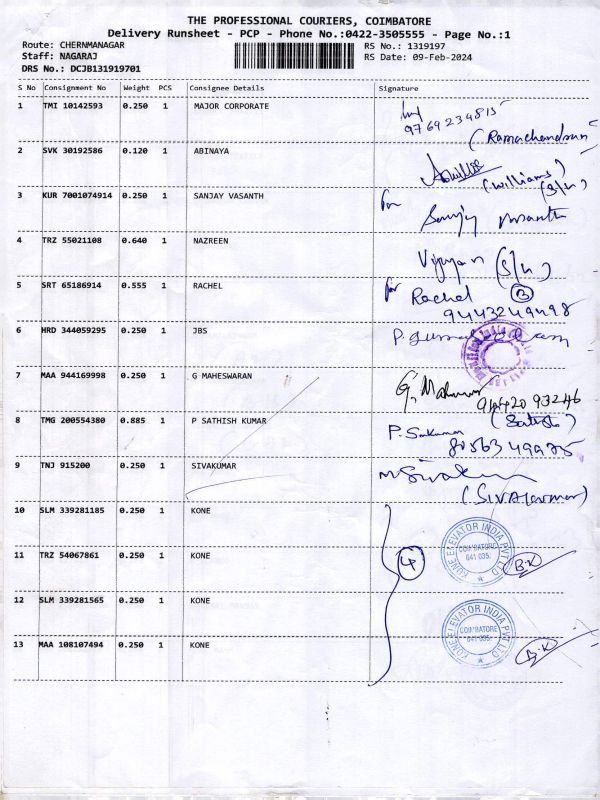 THE PROFESSIONAL COURIERS, COIMBATORE
Delivery Runsheet - PCP - Phone No.:0422-3505555 - Page No.:1
Route: CHERNMANAGAR
Staff: NAGARAJ
DRS No.: DCJB131919701
RS No.: 1319197
RS Date: 09-Feb-2024
S No Consignment No Weight PCS Consignee Details Signature
1 TMI 10142593 0.250 1 MAJOR CORPORATE
9769234815
(Ramachandran)
2 SVK 30192586 0.120 1 ABINAYA
(Williams)
(S/U)
3 KUR 7001074914 0.250 1 SANJAY VASANTH for
Sanjay Vasanth
4 TRZ 55021108 0.640 1 NAZREEN
Vijayan (S/U)
5 SRT 65186914 0.555 1 RACHEL for Rachel
9443249498
6 HRD 344059295 0.250 1 JBS P.
7 MAA 944169998 0.250 1 G MAHESWARAN G.
94420 93246
8 TMG 200554380 0.885 1 P SATHISH KUMAR P. (Sathish)
80563 49975
9 TNJ 915200 0.250 1 SIVAKUMAR M Sivakumar
(SIVAKUMAR)
10 SLM 339281185 0.250 1 KONE
KONE ELEVATOR INDIA PVT LTD
COIMBATORE
641 035.
11 TRZ 54067861 0.250 1 KONE 4 B.K
12 SLM 339281565 0.250 1 KONE
KONE ELEVATOR INDIA PVT LTD
COIMBATORE
641 035.
13 MAA 108107494 0.250 1 KONE B.K